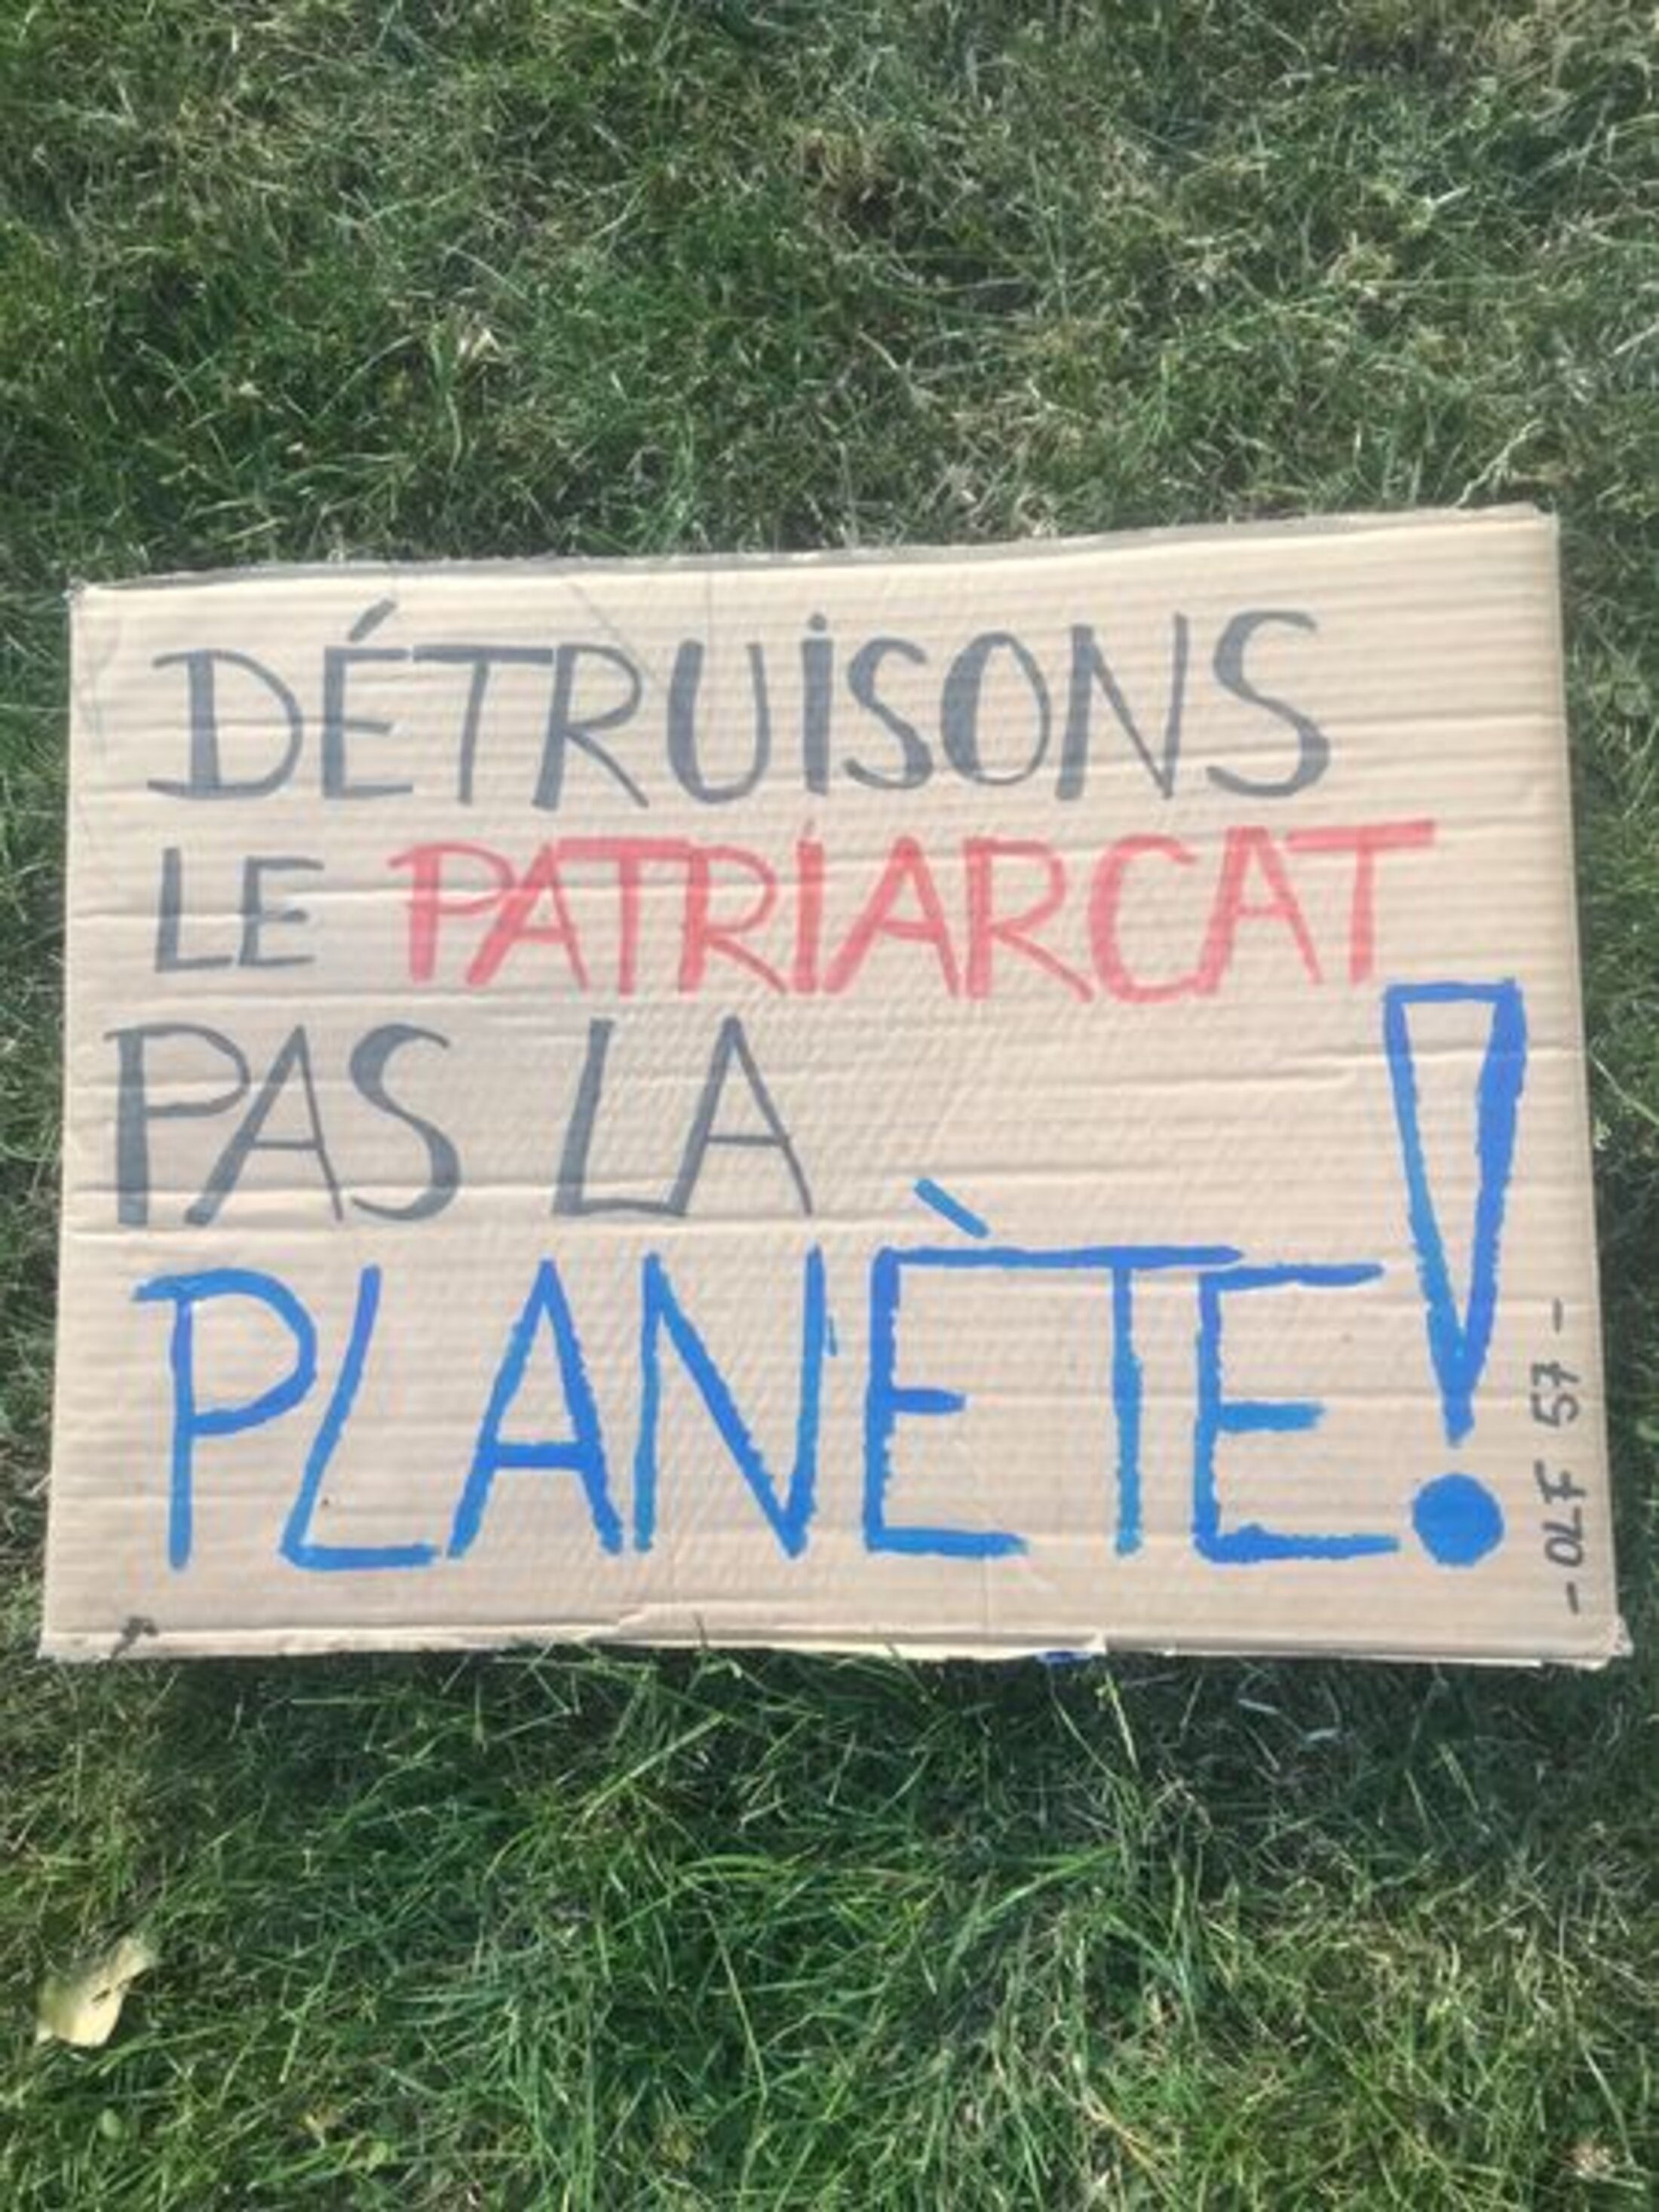 DÉTRUiSONS
LE PATRIARCAT
PAS LA
PLANÈTE!
- OLF 57 -